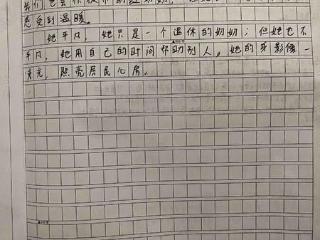 感受到温暖。
她平凡，她只是一个退休的奶奶；但她也不
平凡，她用自己的时间帮助别人，她的身影像一
束光，照亮居民心房。